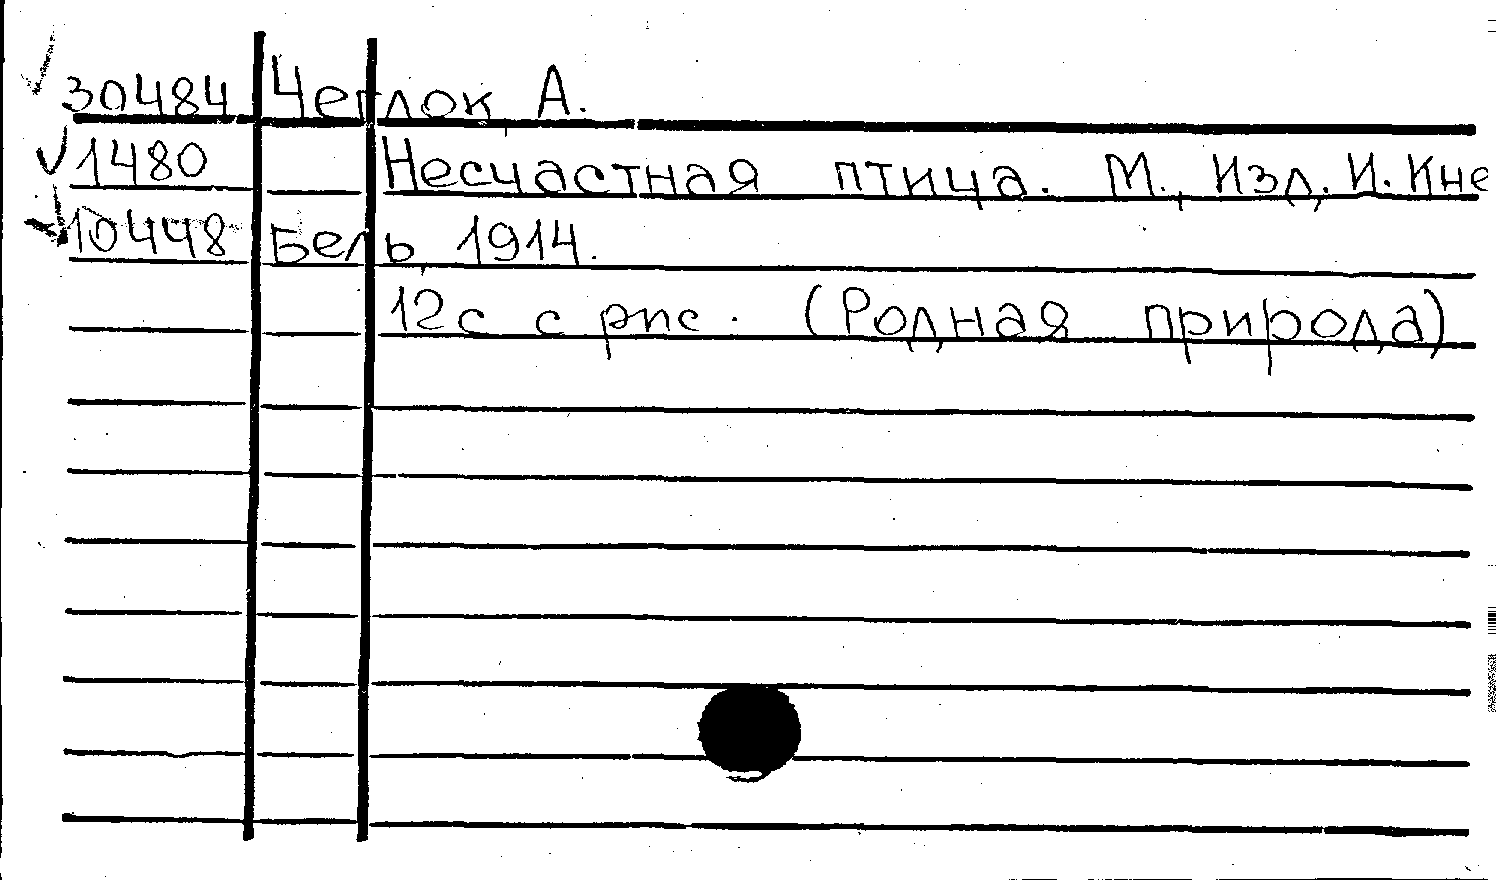 30484 Чеглок, А.
1480 Несчастная птица. М., Изд. И. Кне
10448 бель, 1914.
12с с рис. (Родная природа)